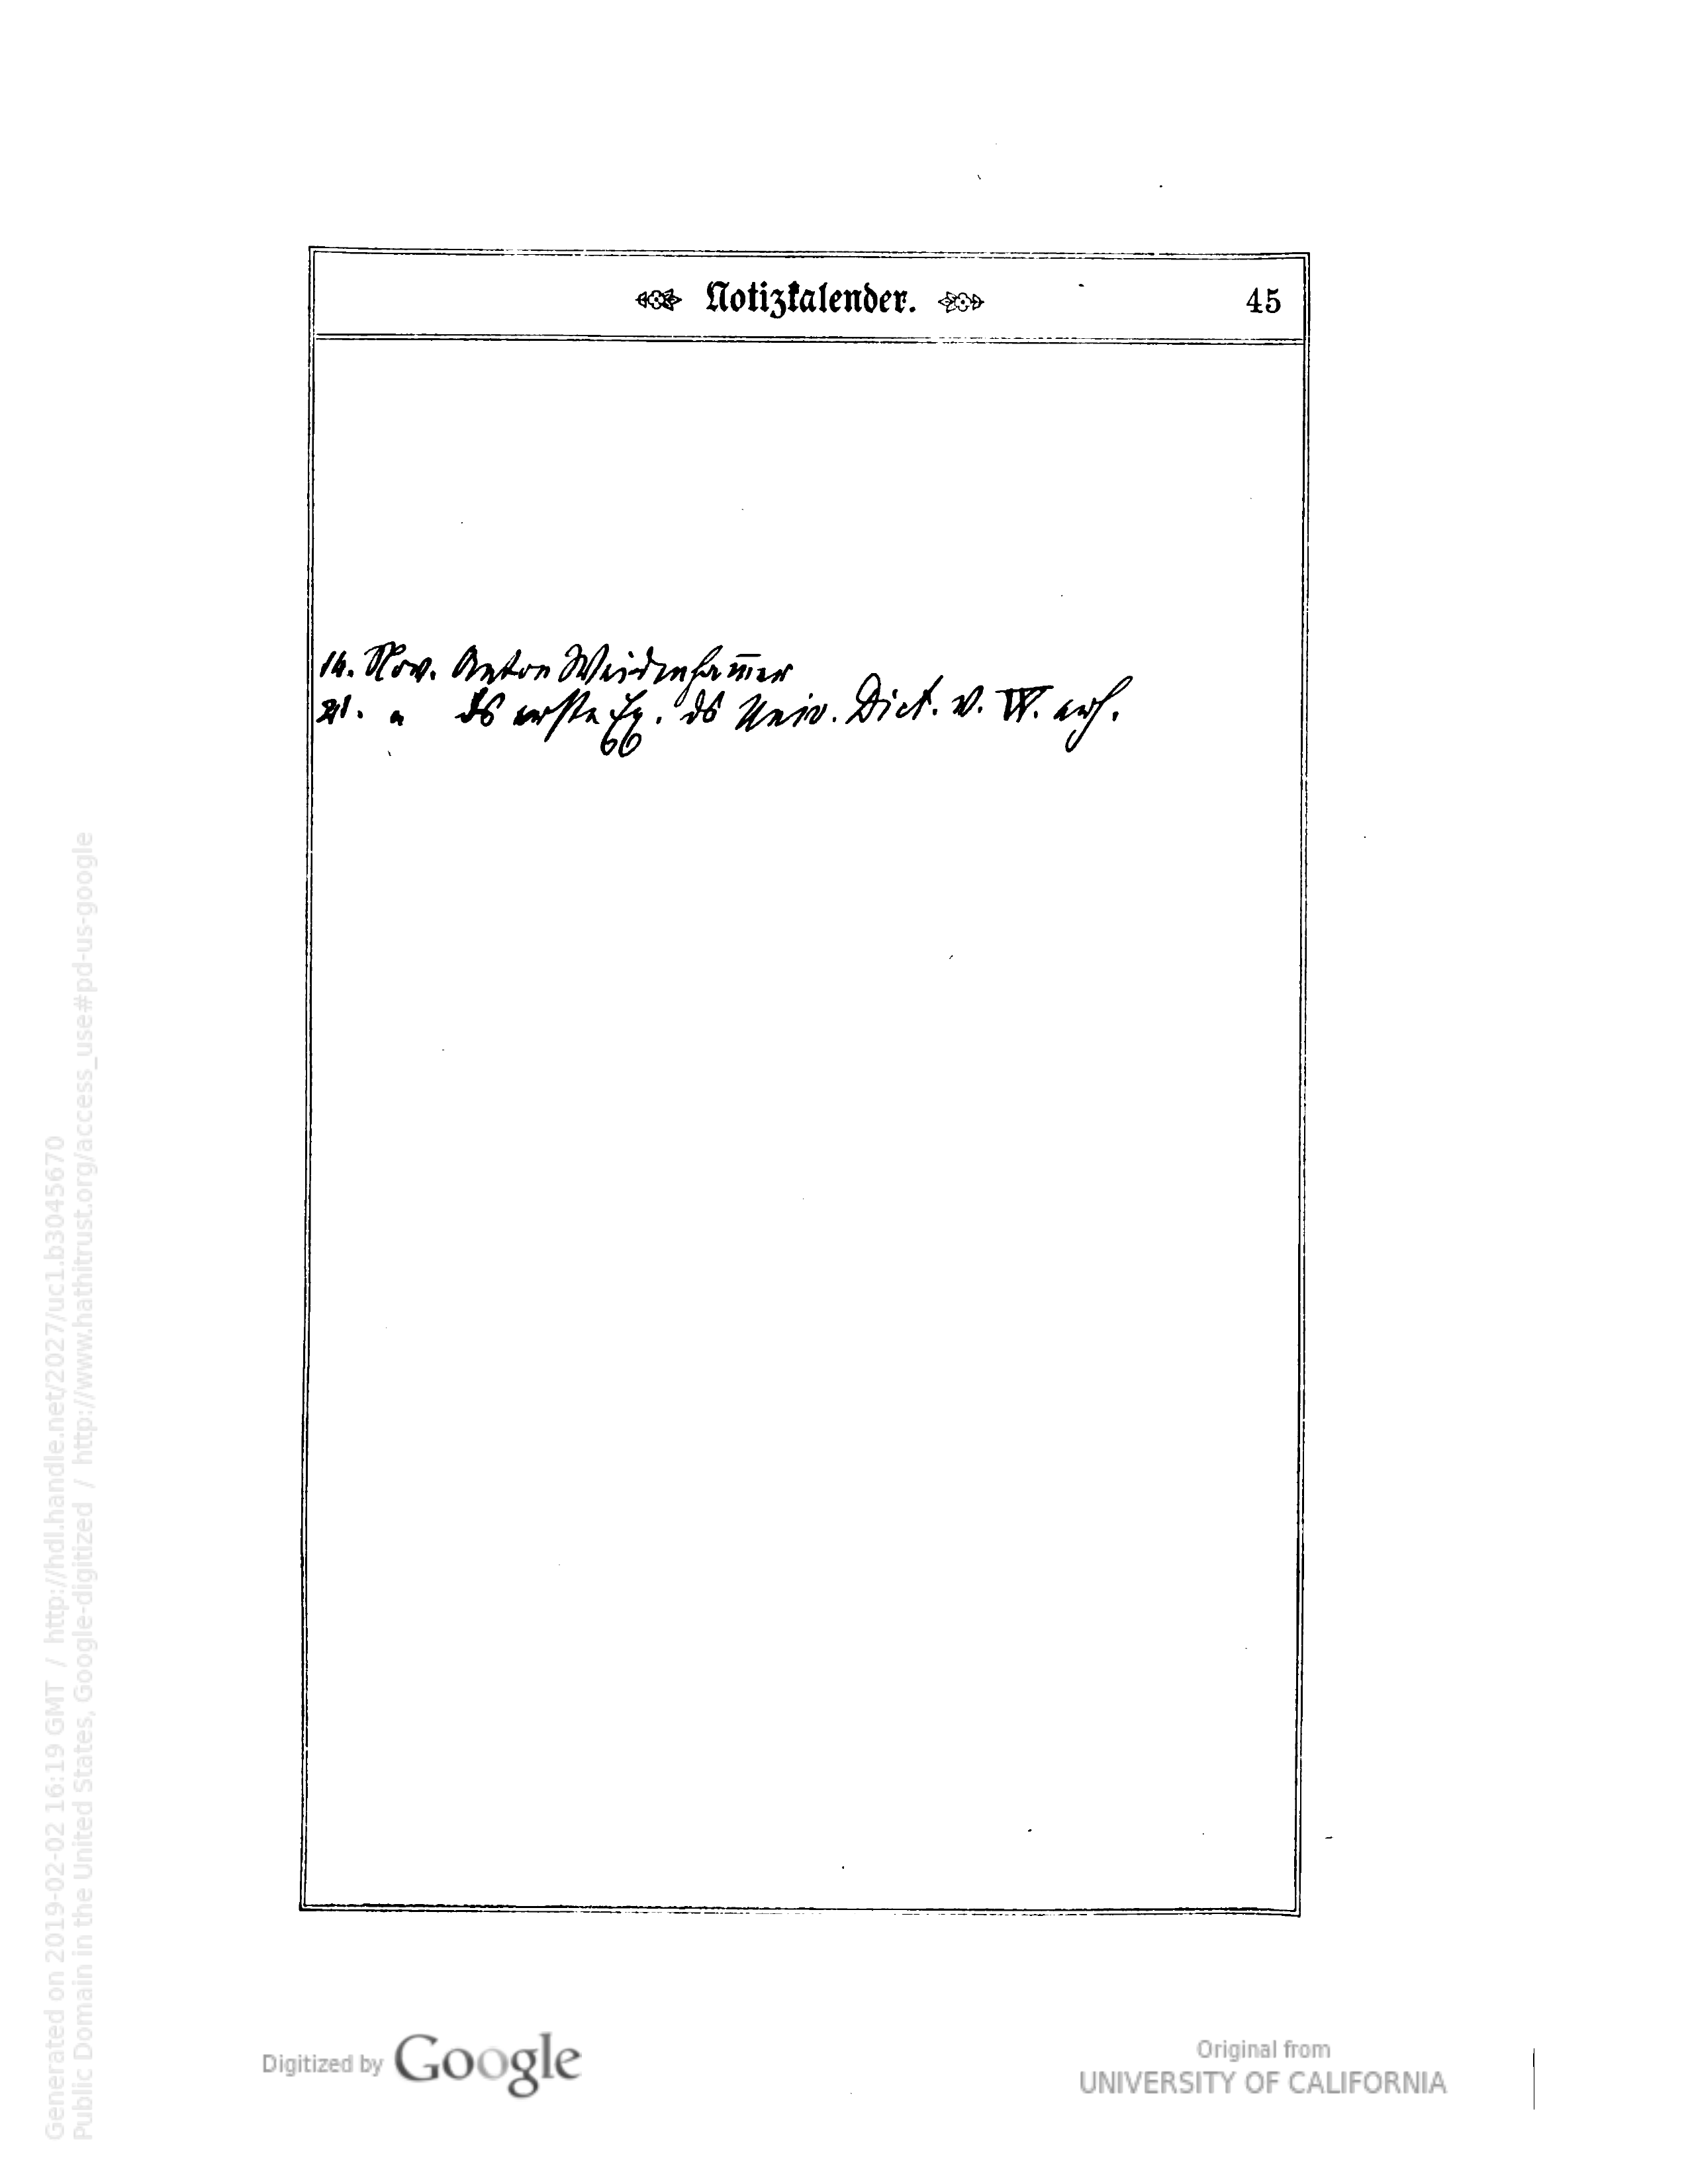 Notizkalender. 45
14. Nov. Anton Weidenham̅er
21. " ds erste Ex. ds Univ. Dict. v. W. erh.
Generated on 2019-02-02 16:19 GMT / http://hdl.handle.net/2027/uc1.b3045670
Public Domain in the United States, Google-digitized / http://www.hathitrust.org/access_use#pd-us-google
Digitized by Google
Original from
UNIVERSITY OF CALIFORNIA